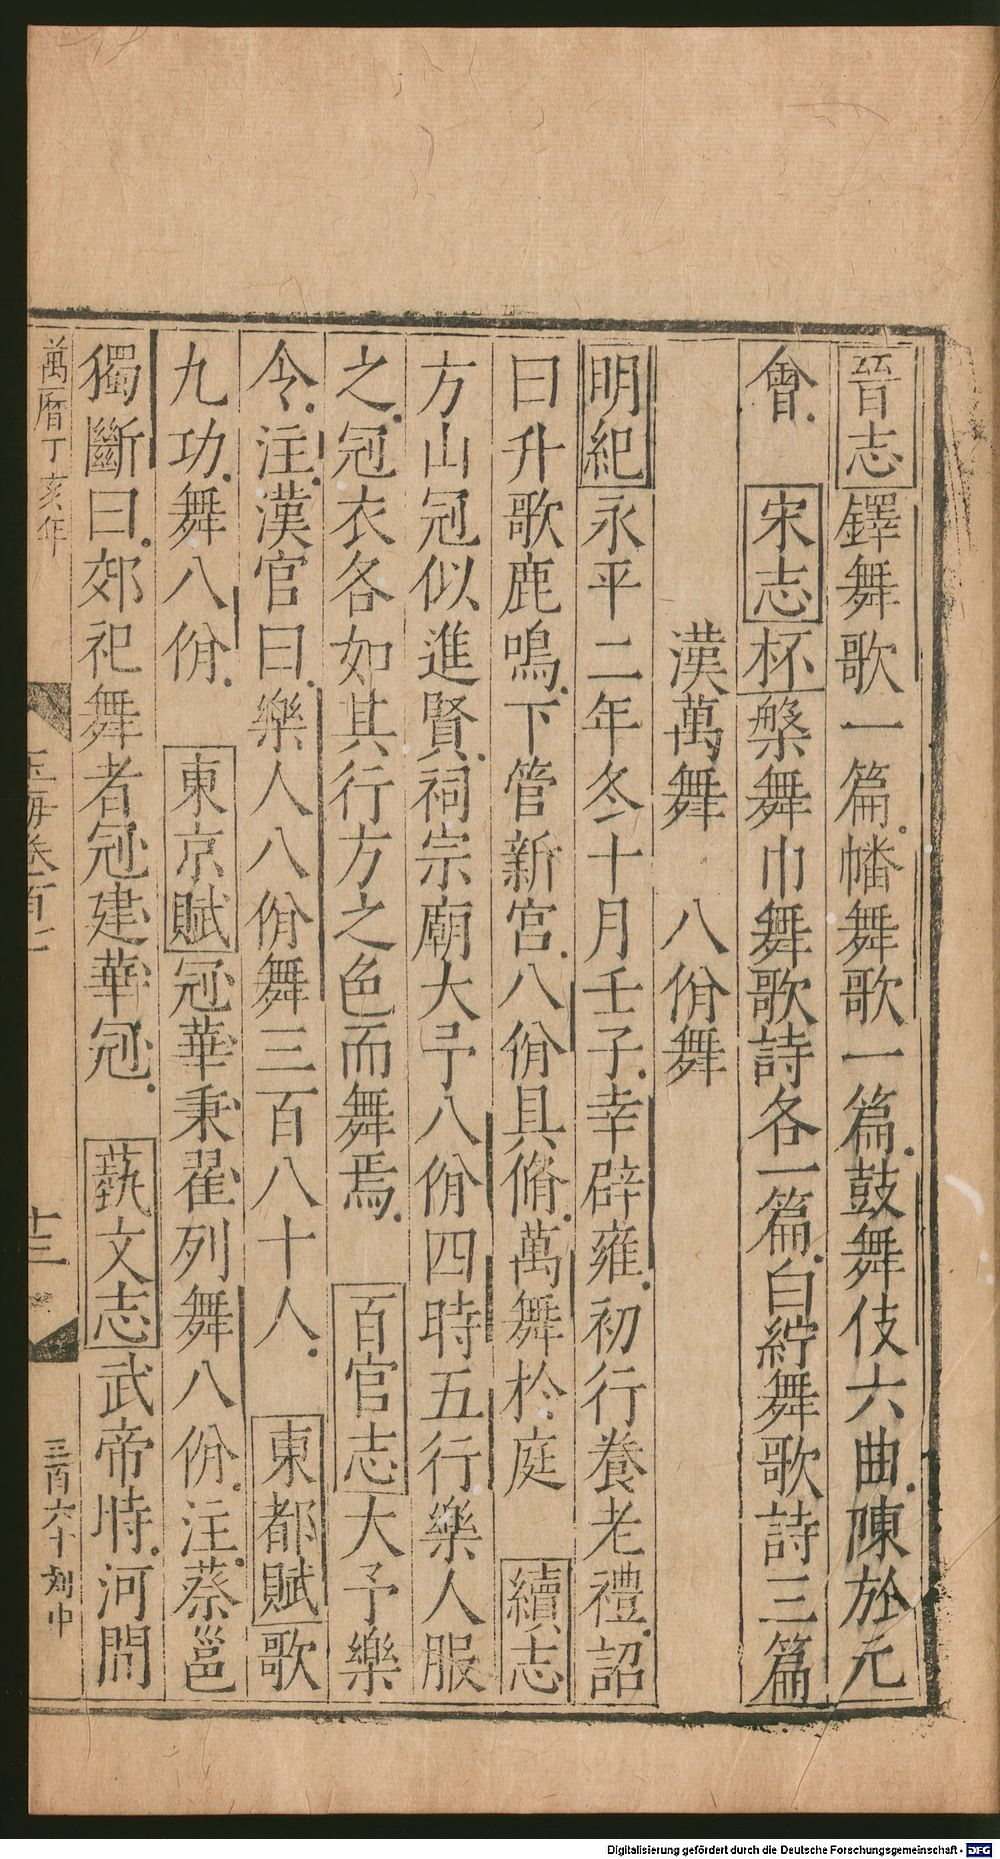 晉志鐸舞歌一篇幡舞歌一篇鼓舞伎六曲陳於元
會　宋志杯槃舞巾舞歌詩各一篇白紵舞歌詩三篇
漢萬舞　八佾舞
明紀永平二年冬十月壬子幸辟雍初行養老禮詔
曰升歌鹿鳴下管新宮八佾具脩萬舞於庭　續志
方山冠似進賢祠宗廟大予八佾四時五行樂人服
之冠衣各如其行方之色而舞焉　百官志大予樂
令注漢官曰樂人八佾舞三百八十人　東都賦歌
九功舞八佾　東京賦冠華秉翟列舞八佾注蔡邕
獨斷曰郊祀舞者冠建華冠　藝文志武帝時河間
萬曆丁亥年　玉海卷百七　十三　三百六十　刘中
Digitalisierung gefördert durch die Deutsche Forschungsgemeinschaft - DFG